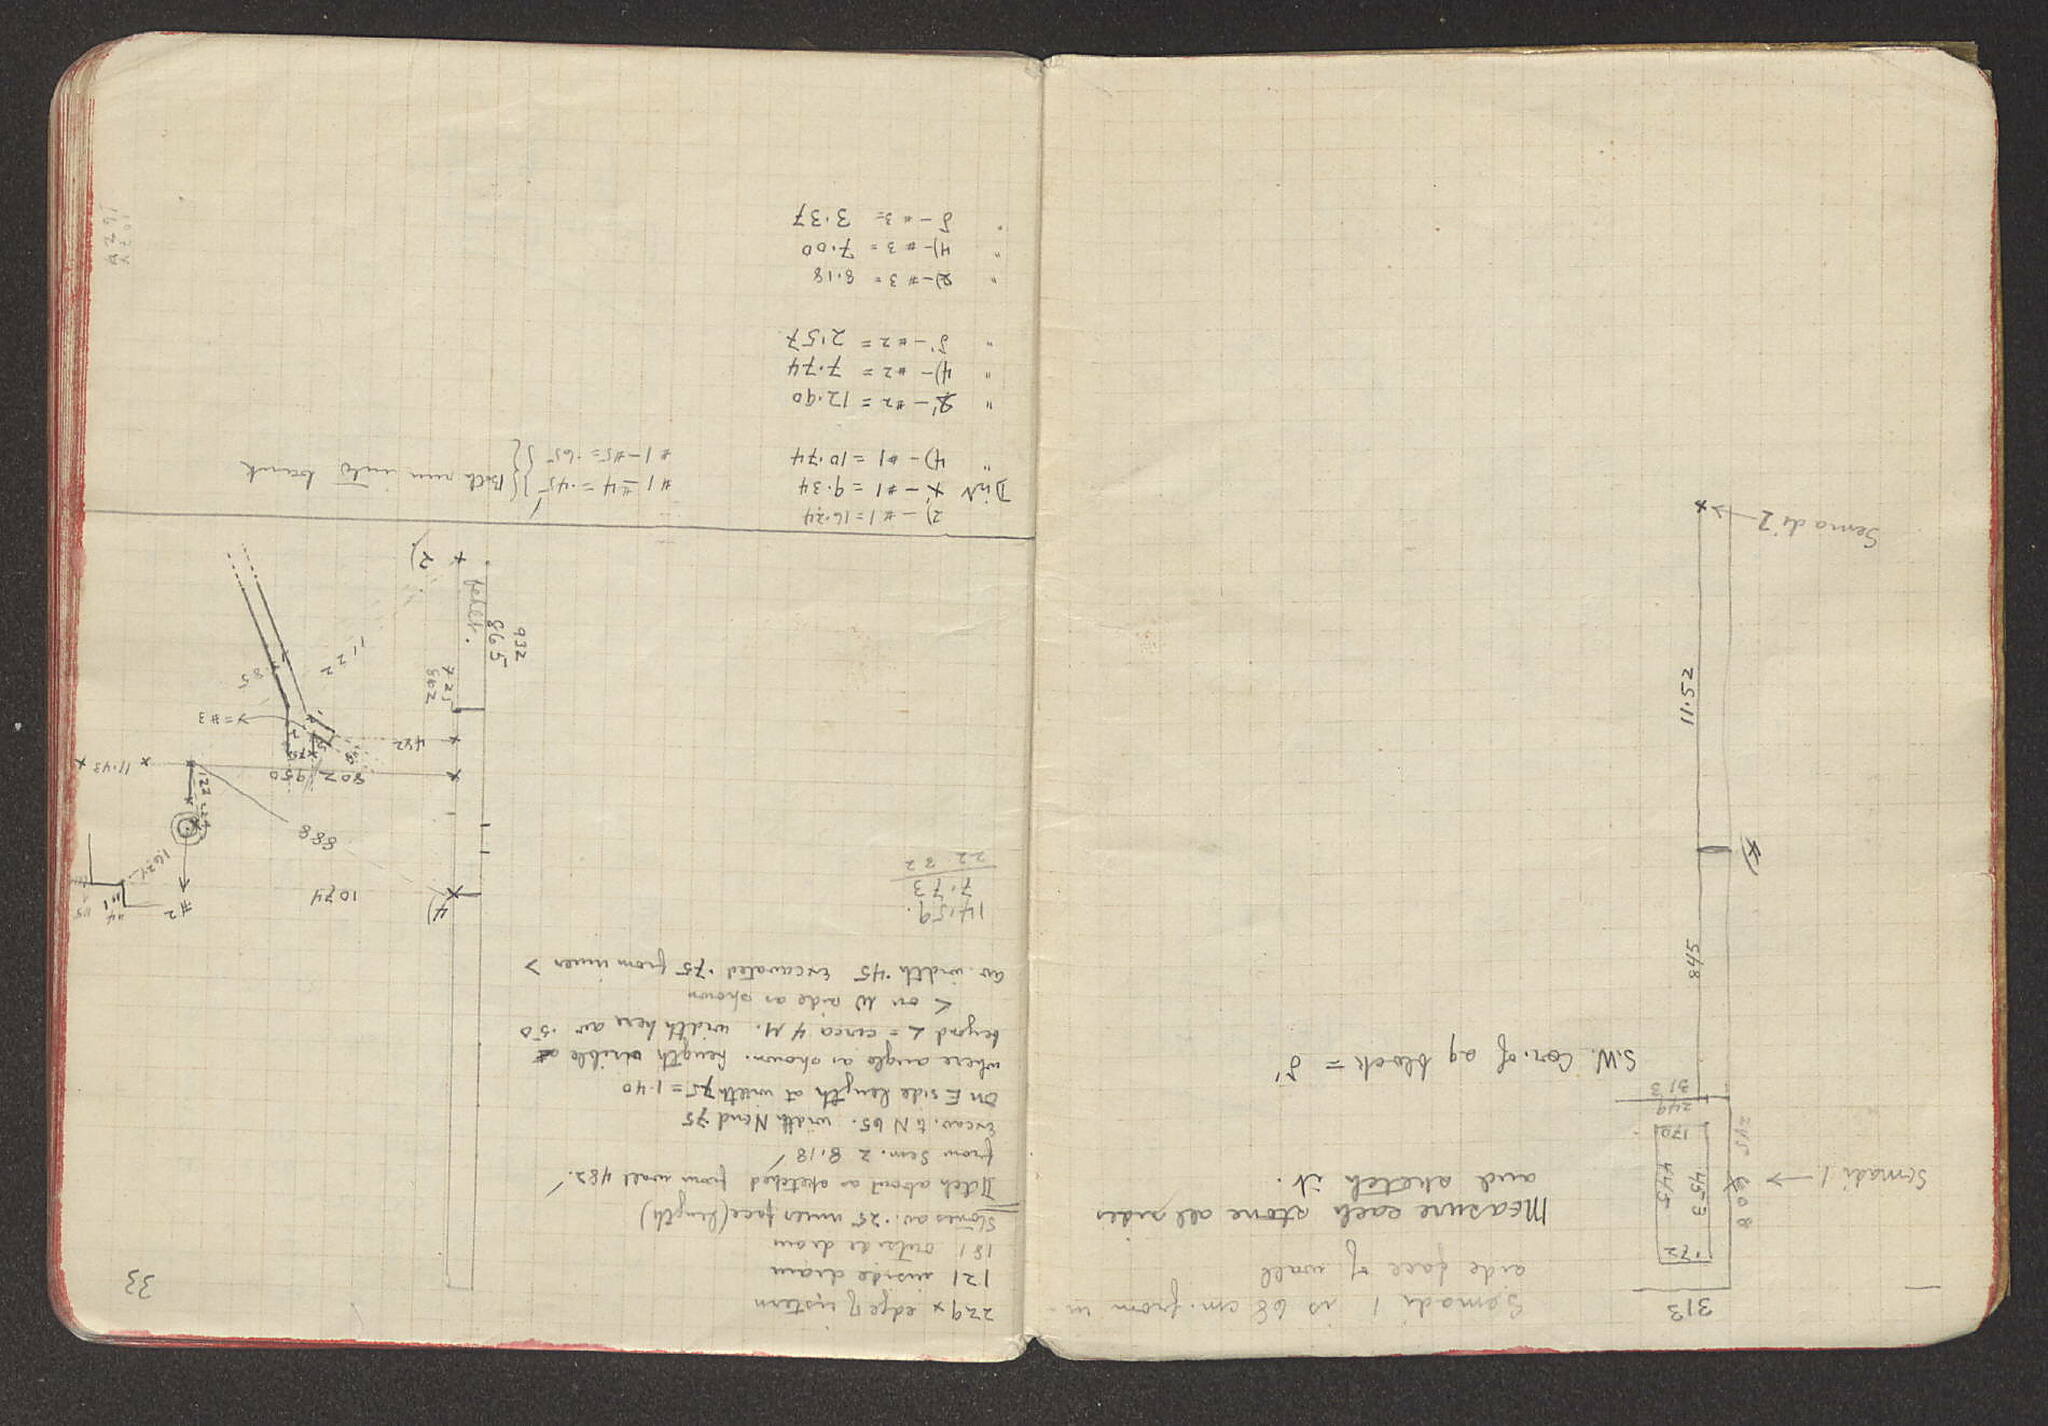 33
229 x edge of cistern
121 inside diam
181 outside diam
Stones av. .25 inner face (length)
Ditch about as sketched from wall 482.
from Sem. 2 8.18
Excav. to N 65. width N end 75
on E side length at width 75 = 1.40
where angle as shown. length visible
beyond < = circa 4 M. width here av .50
< on W side as shown
av. width .45 Excavated .75 from inner >
14.59.
7.73
22 32
4)
1074
#2
#4
#1
#5
1624
888
122
807
950
11.43
482
= #3
75
85
1.22
725
662
865
932
peket.
2)
2) - #1 = 16.24
Dist x' - #1 = 9.34
" 4) - #1 = 10.74
#1 - #4 = .45
#1 - #5 = .65
Both run into bank
" 2' - #2 = 12.90
" 4) - #2 = 7.74
" 5' - #2 = 2.57
" 2) - #3 = 8.18
" 4) - #3 = 7.00
" 5 - #3 = 3.37
313
Semadi 1 is 68 cm. from in-
side face of wall
Measure each stone all sides
and sketch it.
Semadi 1
.72
453
445
170
608
245
249
313
S.W. Cor. of ag block = 5'
845
4)
11.52
Semadi 2